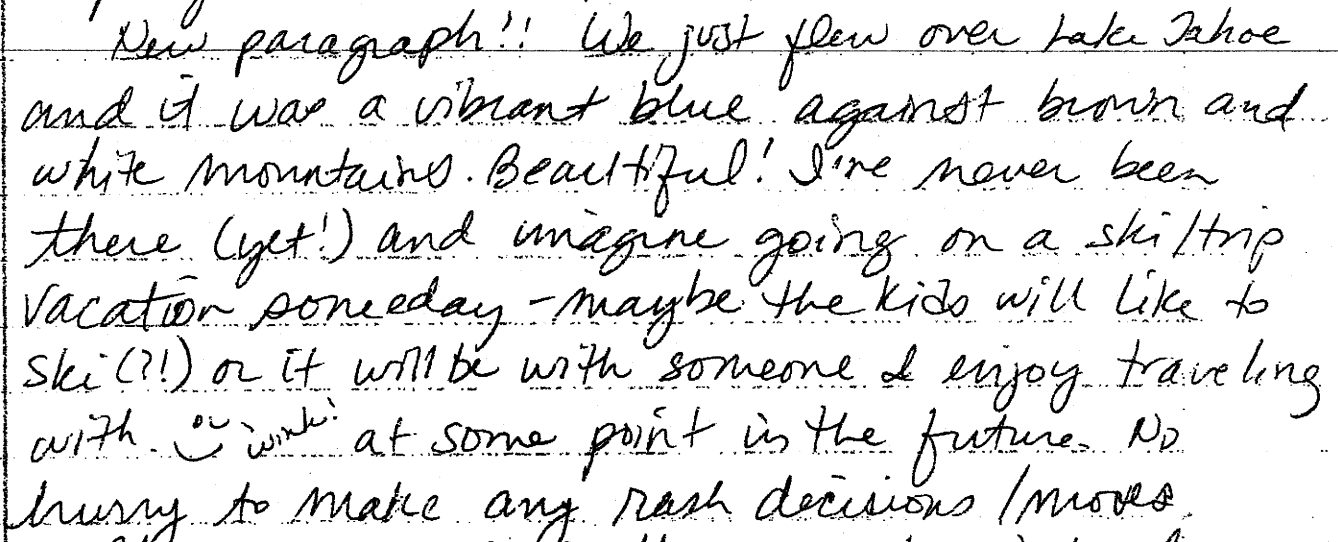 New paragraph!! We just flew over Lake Tahoe
and it was a vibrant blue against brown and
white mountains. Beautiful! I've never been
there (yet!) and imagine going on a ski/trip
vacation someday - maybe the kids will like to
ski (?!) or it will be with someone I enjoy traveling
with wink! at some point in the future. No
hurry to make any rash decisions / moves.